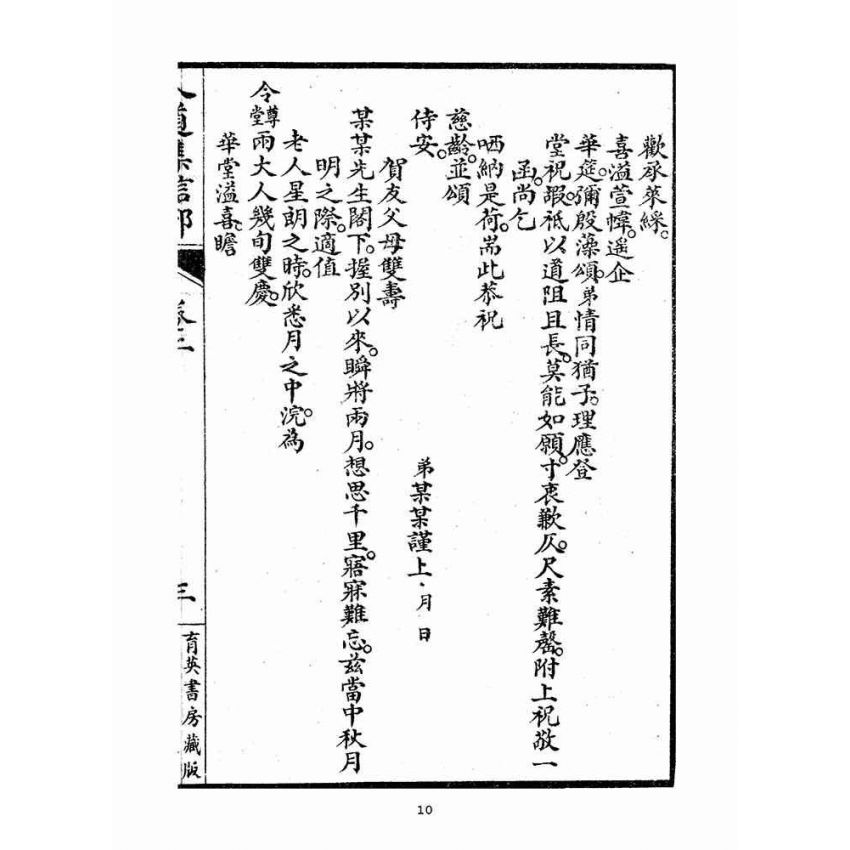 歡承萊綵。
喜溢萱幃。遥企
華筵。彌殷澡頌。弟情同猶子。理應登
堂祝嘏。祗以道阻且長。莫能如願。寸衷歉仄。尺素難罄。附上祝敬一
函。尚乞
哂納是荷。耑此恭祝
慈齡。並頌
侍安。
弟某某謹上·月 日
賀友父母雙壽
某某先生閣下。握別以來。瞬將兩月。想思千里。寤寐難忘。茲當中秋月
明之際。適值
老人星朗之時。欣悉月之中浣。為
令尊堂兩大人幾旬雙慶。
華堂溢喜。瞻
集信部
三
育英書房藏版
10